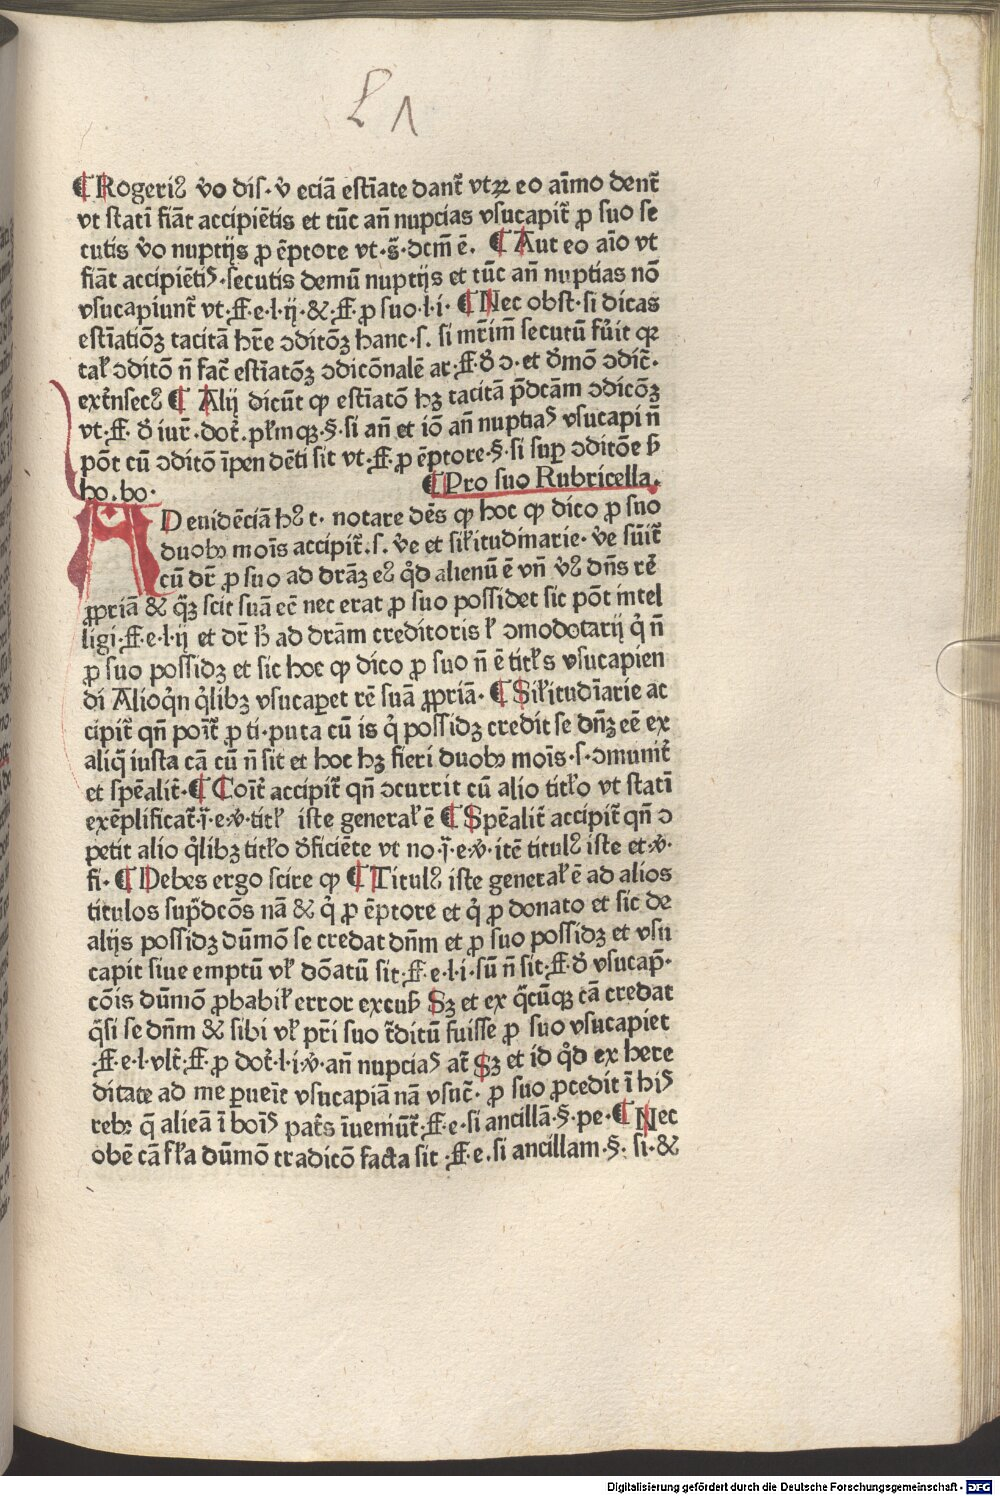 L 1
¶ Rogeriꝰ v̊o dis· v̊ eciā estīate danť vtꝝ eo aīmo denť
vt statī fiāt accipiētis et tūc añ nupcias vsucapiť ꝓ suo se
cutis v̊o nuptijs ꝓ ēptore vt·s̄·dcm̄ ē. ¶ Aut eo aīo vt
fiāt accipiētiꝰ·secutis demū nuptijs et tūc añ nuptias nō
vsucapiunť vt·ff·e·l·ij·&·ff·ꝓ suo·l·i· ¶ Nec obst·si dicas
estīatiōꝫ tacitā hr̄e ↄditōꝫ hanc·s. si mr̄im̄ secutū fu̓it qꝛ
tal̓ ↄditō ñ fac̄ estīatōꝫ ↄdicōnalē ar·ff·ꝺ̓ ↄ·et ꝺ̓mō ↄdic̄·
exťnsecꝰ ¶ Alij dicūt ꝙ estīatō hꝫ tacitā p̄dcām ↄdicōꝫ
vt·ff· ꝺ̓ iur̄·doť.pl̓mqꝫ·§·si añ et iō añ nuptiaꝰ vsucapi ñ
pōt cū ↄditō īpen dēti sit vt·ff·ꝓ ēptore·§·si suꝑ ↄditōe ẜ
ho.bo·
¶ Pro suo Rubricella.
AD euidēciā hꝰ t· notare dēs ꝙ hoc ꝙ dico ꝓ suo
duobꝫ moīs accipiť.s. v̓e et sil̓itudinarie· v̓e sūiť
cū dr̄ ꝓ suo ad dr̄āꝫ eꝰ qd̓ alienū ē vñ vꝰ dñs rē
ꝓpriā & qꝫ scit suā eē nec erat ꝓ suo possidet sic pōt intel
ligi·ff·e·l·ij et dr̄ ẜ ad dr̄am creditoris l̓ ↄmodotarij q̓ ñ
ꝓ suo possidꝫ et sic hoc ꝙ dico ꝓ suo ñ ē titl̓s vsucapien
di Alioq̓n q̓libꝫ vsucaꝑet rē suā ꝓpriā· ¶ Sil̓itudīarie ac
cipiť qñ poīť ꝓ ti·puta cū is q̓ possidꝫ credit se dñꝫ eē ex
aliq̓ iusta cā cū ñ sit et hoc hꝫ fieri duobꝫ moīs·s·ↄmuniť
et spēaliť·¶ Coīť accipiť qñ ↄcurrit cū alio titl̓o vt statī
exēplificať·j̄·e·v̓·titl̓ iste general̓ ē ¶ Spēaliť accipiť qñ ↄ
petit alio q̓libꝫ titl̓o ꝺ̓ficiēte vt no·j̄·e·v̓· itē titulꝰ iste et·v̓·
fi· ¶ Debes ergo scire ꝙ ¶ Titulꝰ iste general̓ ē ad alios
titulos sup̄dcōs nā & q̓ ꝓ ēptore et q̓ ꝓ donato et sic de
alijs possidꝫ dūmō se credat dñm et ꝓ suo possidꝫ et vsu
capit siue emptū vl̓ dōatū sit·ff·e·l·i·sū ñ sit·ff·ꝺ̓ vsucap̄·
cōis dūmō ꝓbabil̓ error excuẜ Sꝫ et ex q̄cūqꝫ cā credat
q̓si se dñm & sibi vl̓ pr̄i suo ťditū fuisse ꝓ suo vsucapiet
·ff·e·l·vlť·ff·ꝓ doť·l·i·v̓·añ nupciaꝰ ať Sꝫ et id qd̓ ex here
ditate ad me ꝑueīt vsucapiā nā vsuc̄· ꝓ suo ꝓcedit ī hiꝰ
rebꝫ q̄ alieā ī boīꝰ paťs īueniūť·ff·e·si ancillā·§·pe·¶ Nec
obē cā fl̓a dūmō tradicō facta sit ·ff·e·si ancillam·§· si·&
Digitalisierung gefördert durch die Deutsche Forschungsgemeinschaft · DFG